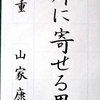 に寄せる
重 山家康